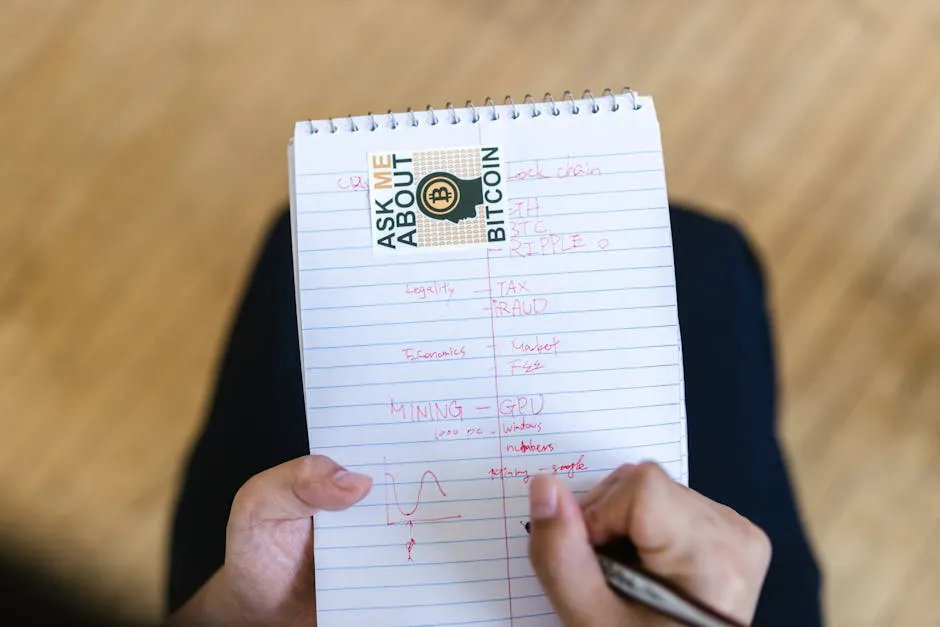 ASK ME
ABOUT
BITCOIN
lock chain
ETH
BTC
RIPPLE
Legality – TAX
– FRAUD
Economics – Market
– FEE
MINING – GPU
1000 pc – Windows
numbers
– google